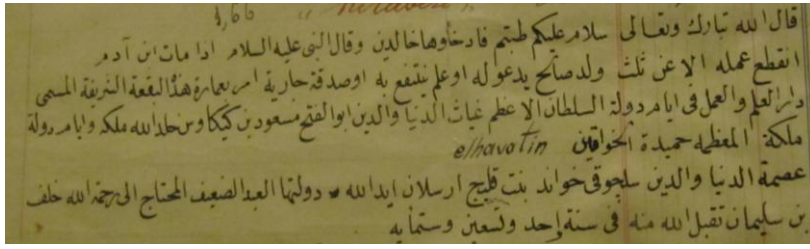 1,66
قال الله تبارك وتعالى سلام عليكم طبتم فادخلوها خالدين وقال النبى عليه السلام اذا مات ابن آدم
انقطع عمله الا عن ثلث ولد صالح يدعو له او علم ينتفع به او صدقة جارية امر بعمارة هذه البقعة الشريفة المسمى
دار العلم والعمل فى ايام دولة السلطان الاعظم غياث الدنيا والدين ابو الفتح مسعود بن كيكاوس خلد الله ملكه وايام دولة
ملكة المعظمه حميدة الخواتين elhavatin
عصمة الدنيا والدين سلجوقى خواند بنت قليج ارسلان ايد الله دولتها العبد الضعيف المحتاج الى رحمة الله خلف
بن سليمان تقبل الله منه فى سنة إحد وتسعين وستمايه